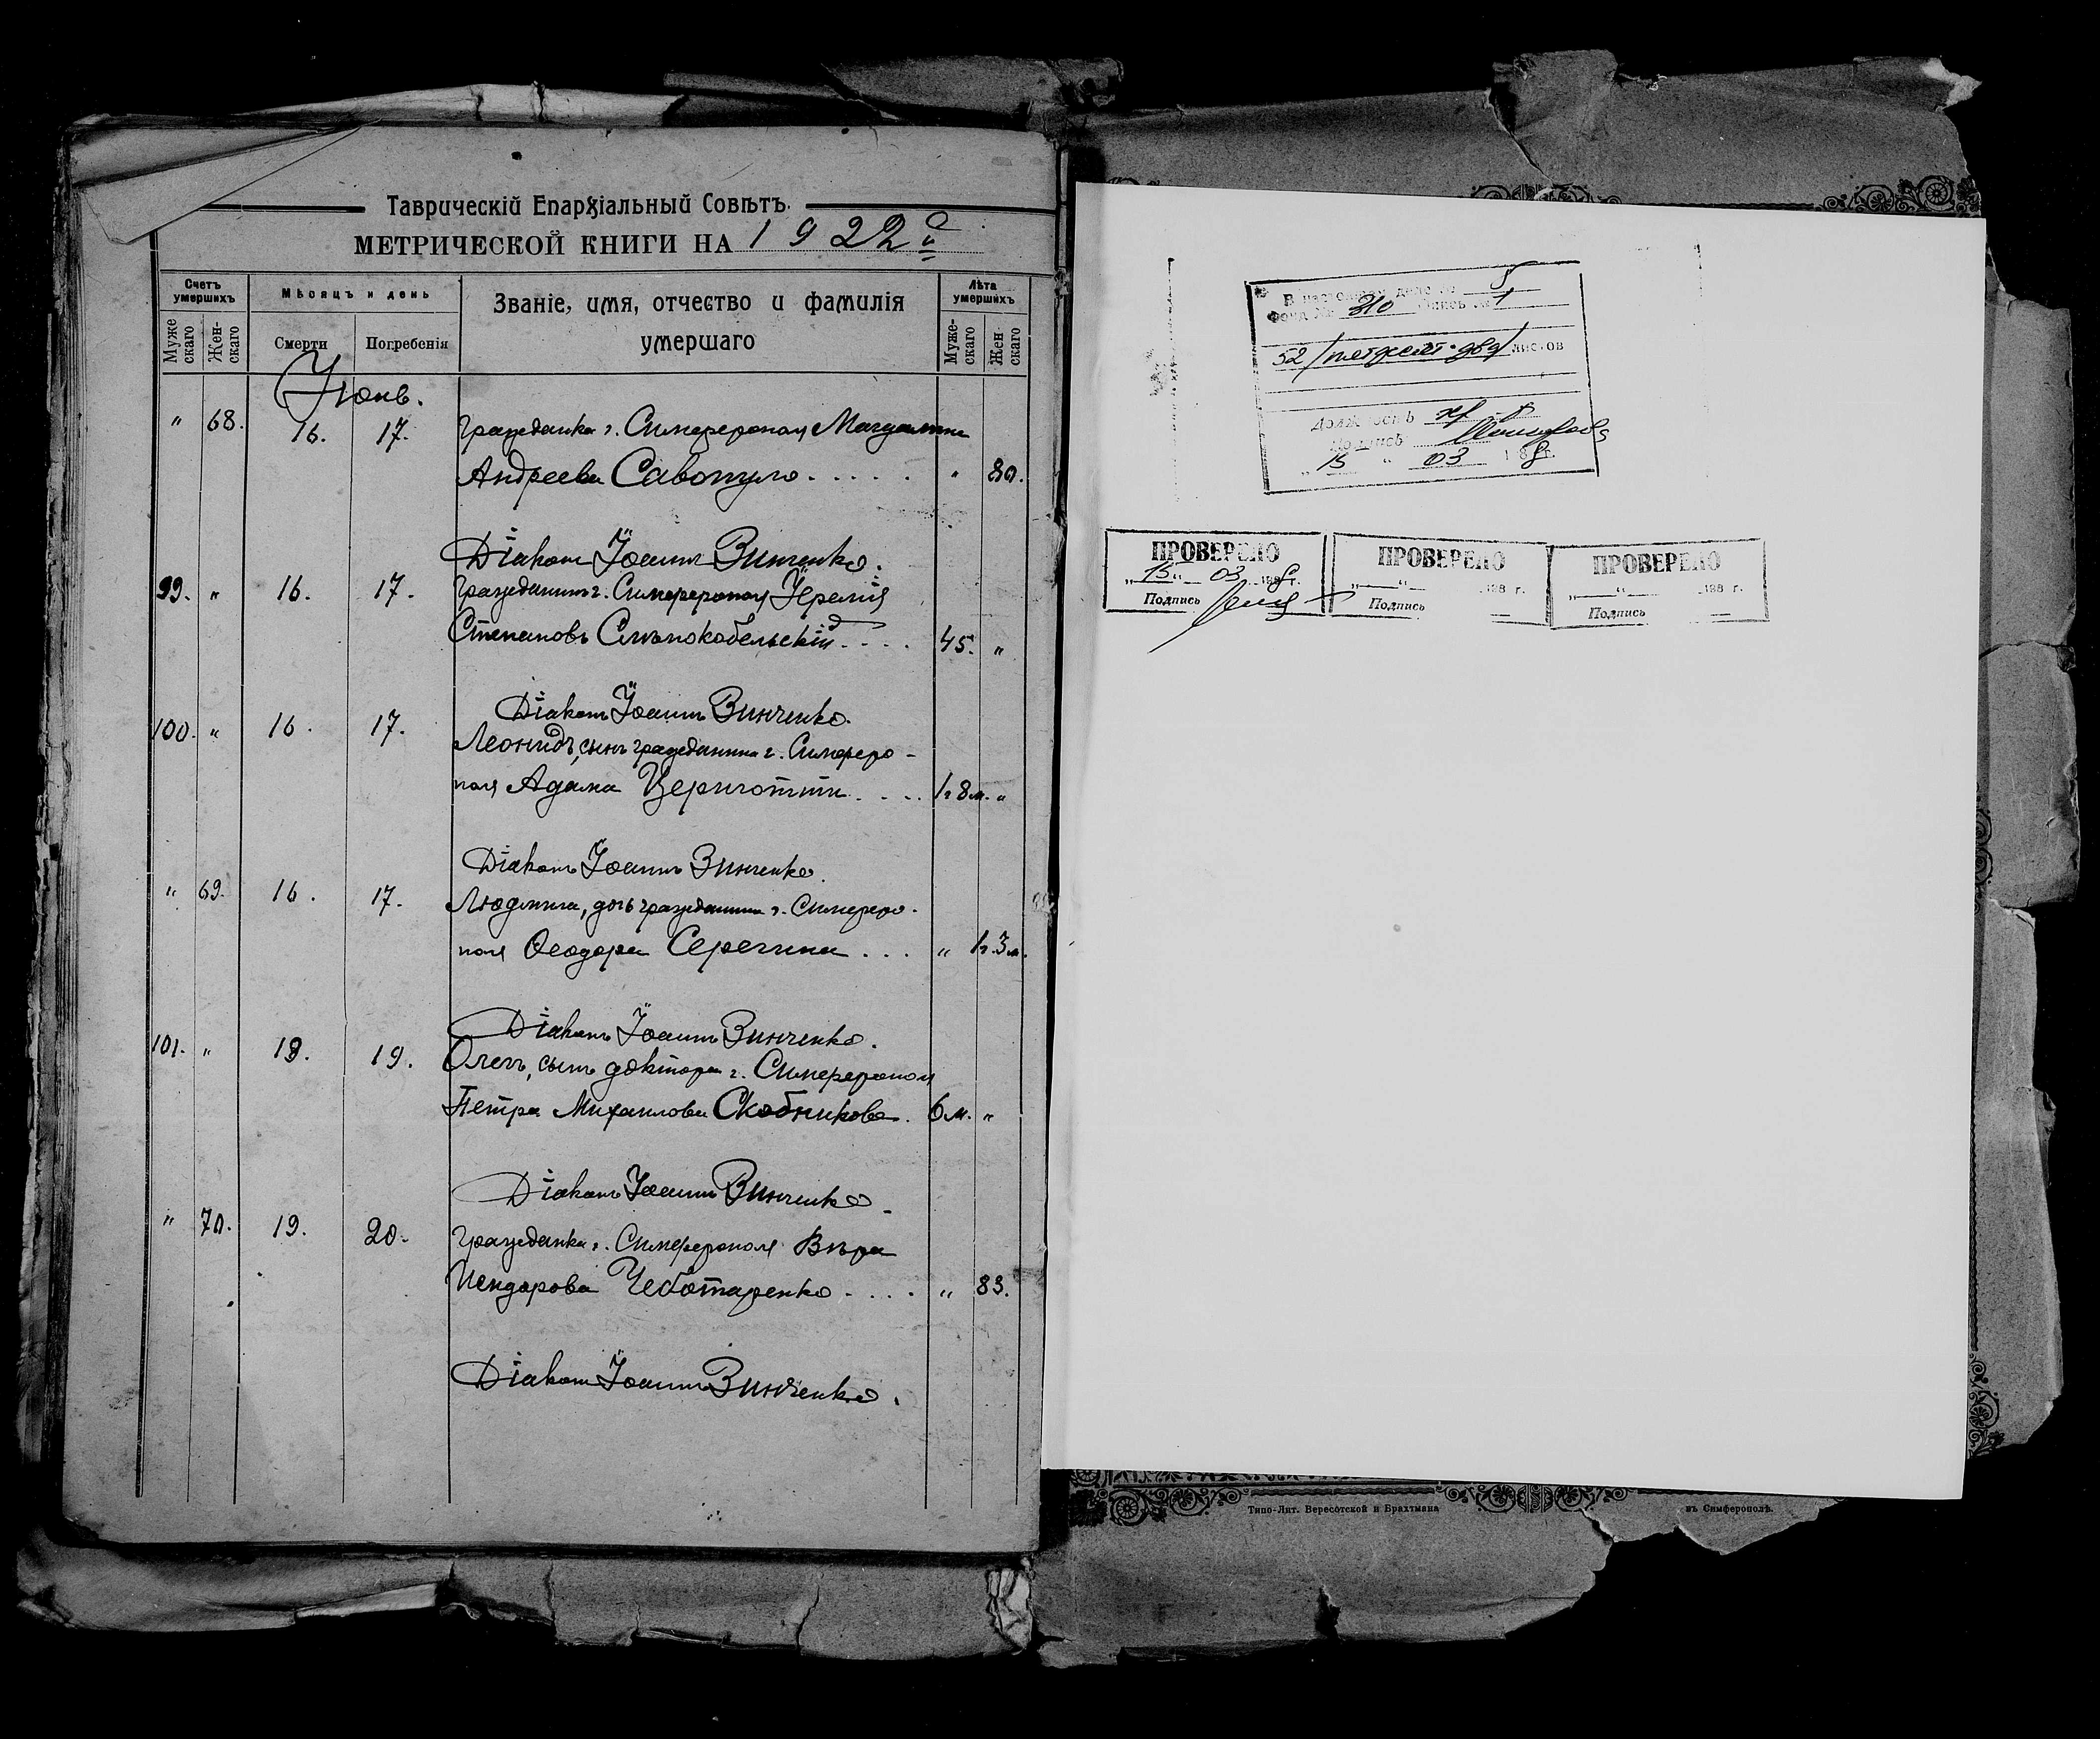 Таврическій Епархіальный Совѣтъ.
МЕТРИЧЕСКОЙ КНИГИ НА 1922й
Счетъ умершихъ
Муже скаго
Жен- скаго
Мѣсяцъ и день
Смерти
Погребенія
Званіе, имя, отчество и фамилія
умершаго
Лѣта умершихъ
Муже- скаго
Жен скаго
Іюнь.
" 68. 16. 17. Гражданка г. Симферополя
Андреева Савопуло . . . . . " 80.
Діаконъ Іоаннъ Зинченко.
99. " 16. 17. Гражданинъ г. Симферополя Іеремія
Степановъ . . . . 45. "
Діаконъ Іоаннъ Зинченко.
100. " 16. 17. Леонидъ, сынъ гражданина г. Симферо-
поля Адама . . . . 1 г 8 м. "
Діаконъ Іоаннъ Зинченко.
" 69. 16. 17. Людмила, дочь гражданина г. Симферо-
поля Ѳеодора Серегина . . . " 1 г. 3 м.
Діаконъ Іоаннъ Зинченко.
101. " 18. 19. Олегъ, сынъ доктора г. Симферополя
Петра Михаилова Скобникова. 6 м. "
Діаконъ Іоаннъ Зинченко.
" 70. 19. 20. Гражданка г. Симферополя Вѣра
Чеботаренко . . . . " 83.
Діаконъ Іоаннъ Зинченко.
В настоящем деле № 5
Фонд № 310 Опись № 1
52 /пятдесят два/ листов
Должность
Подпись
" 15 " 03 198 г.
ПРОВЕРЕНО
" 15 " 03 198 г.
Подпись
ПРОВЕРЕНО
" " 198 г.
Подпись
ПРОВЕРЕНО
" " 198 г.
Подпись
Типо-Лит. Вересотской и Брахтмана въ Симферополѣ.